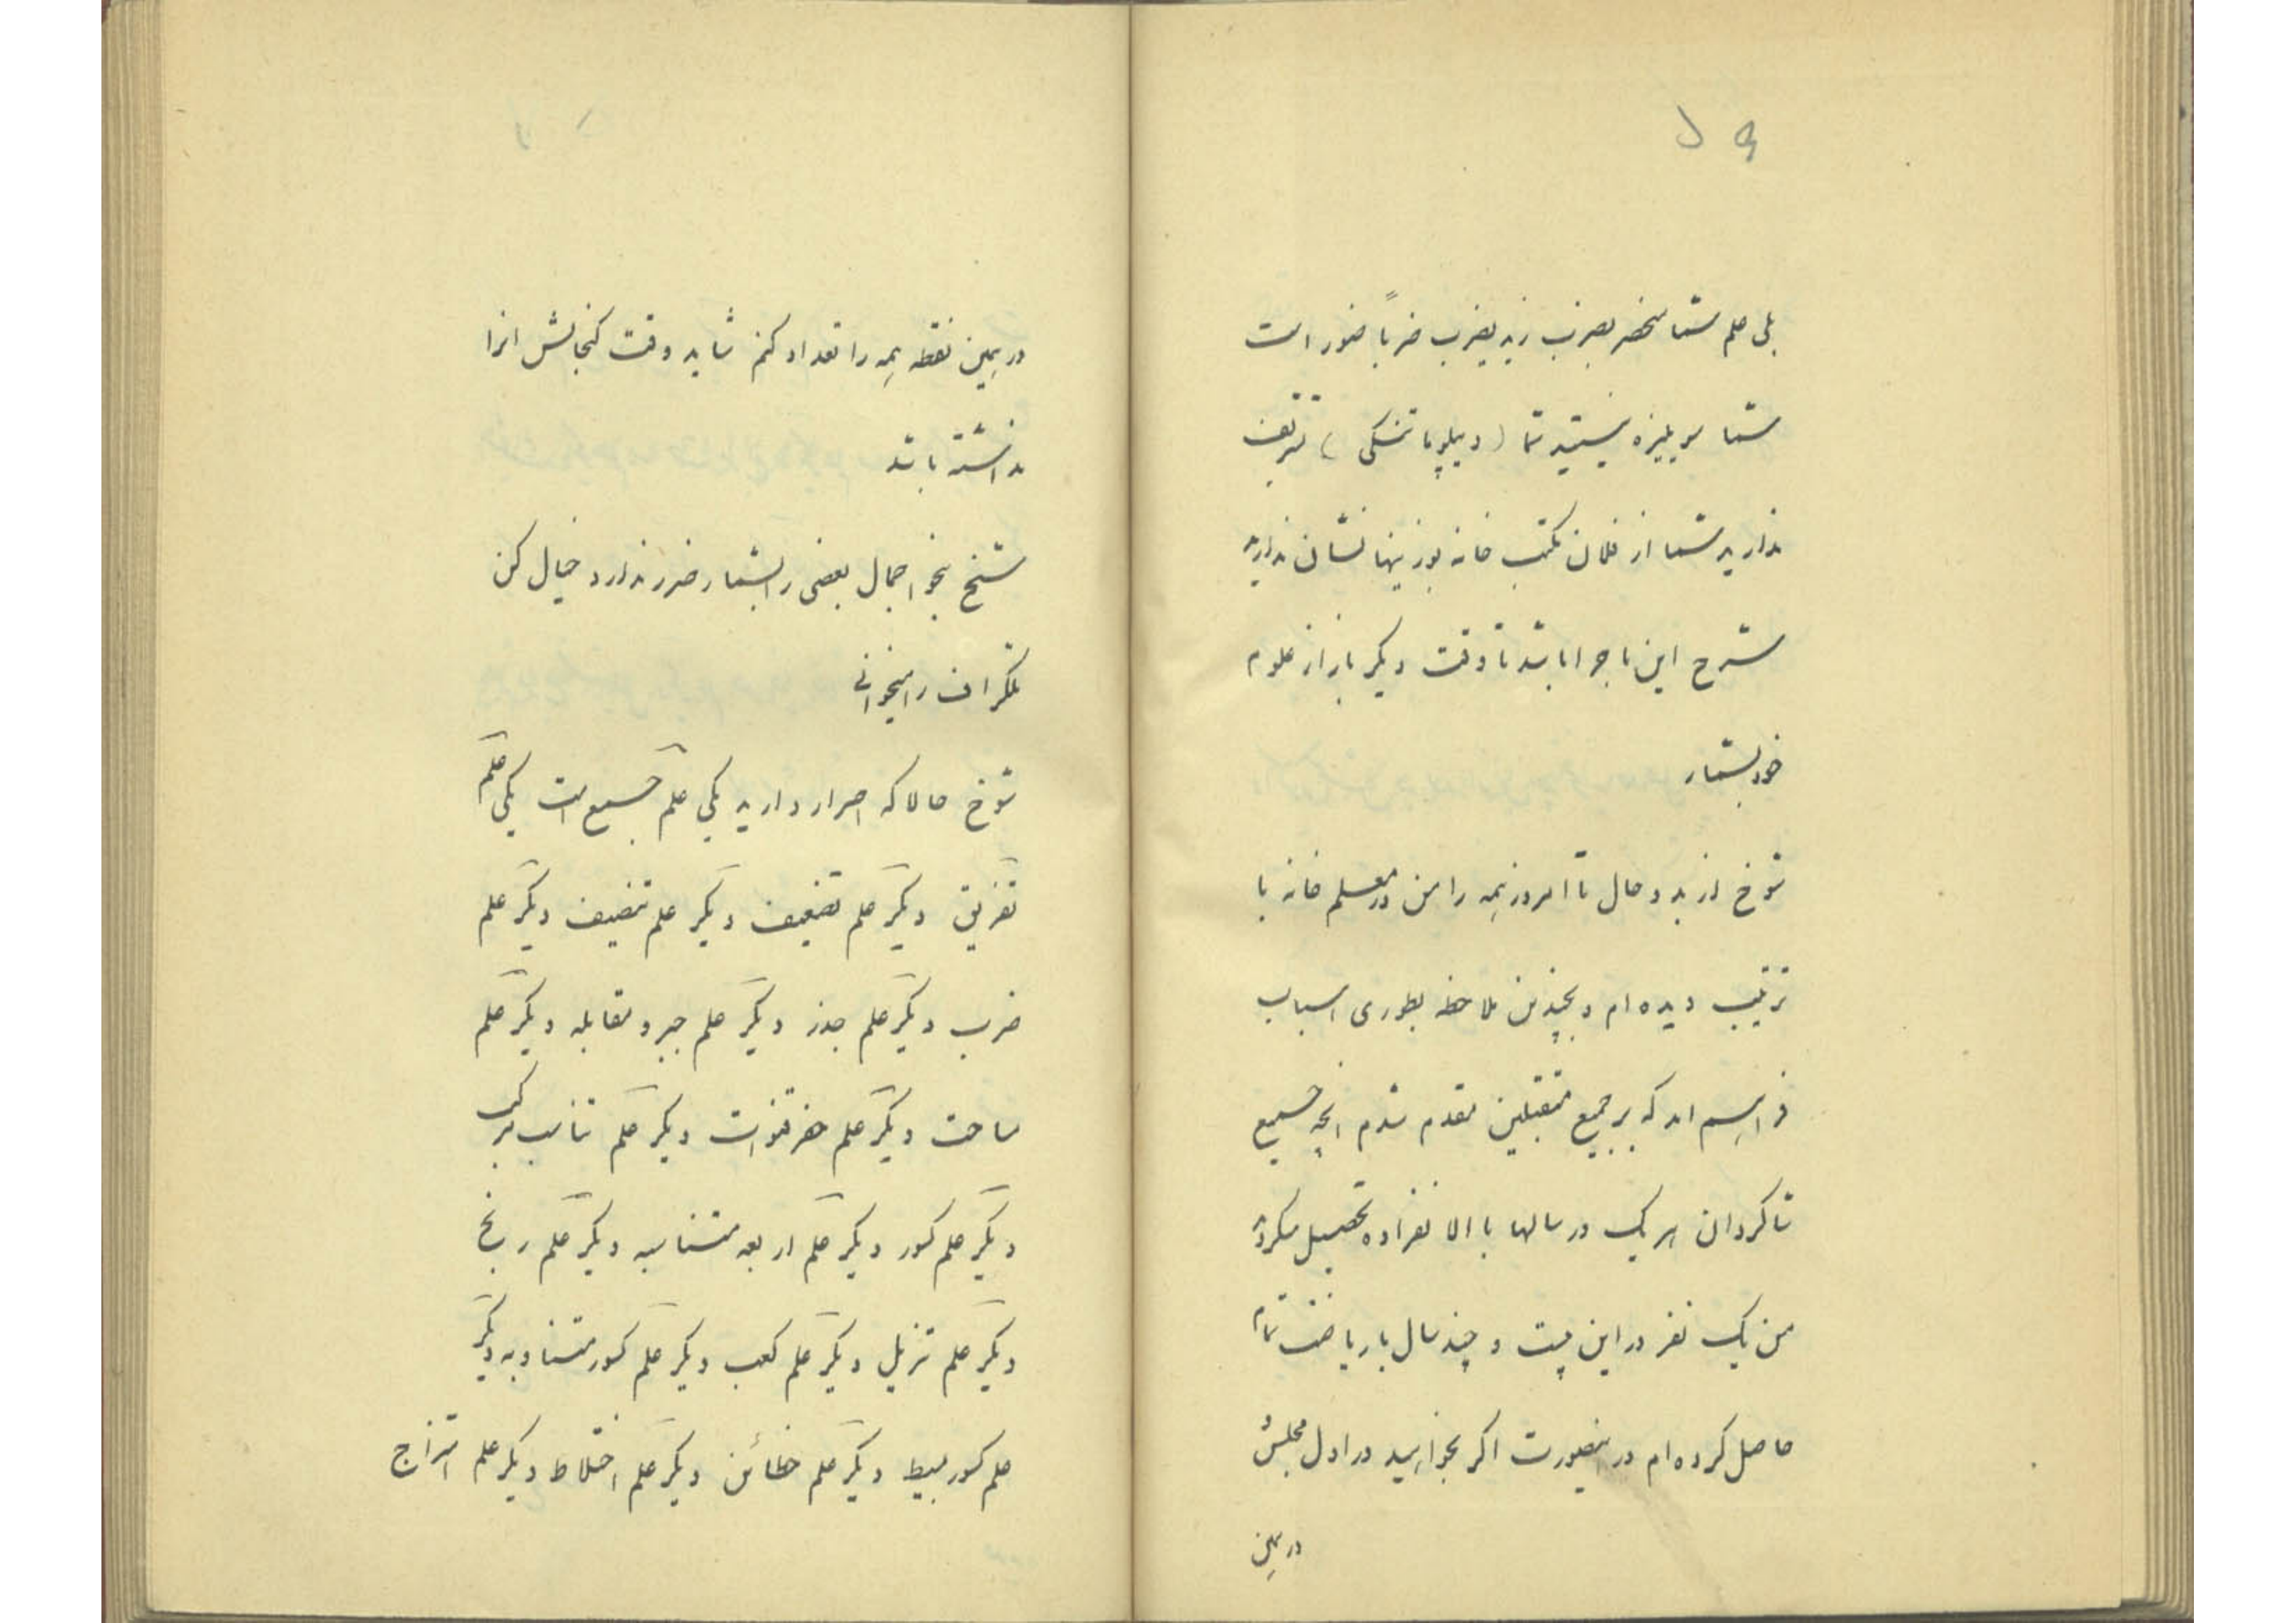 بلی علم شما منحصر بضرب زید یضرب ضرباً ضور است
شما سویلیزه نیستید شما (دیپلوماتکی) تربیت
ندارید شما از فلان مکتب خانه یوزینها نشان ندارید
شرح این ماجرا باشد تا وقت دیگر باز از علوم
خود بشمار
شوخ از بد و حال تا امروز همه را من در معلم خانه با
ترتیب دیده ام و بچندین ملاحظه بطوری اسباب
فراهم امد که بر جمیع متقبلین مقدم شدم انچه جمیع
شاگردان هر یک در سالها با الانفراده تحصیل میکردند
من یک نفر در این بیست و چند سال با ریاضت تمام
حاصل کرده ام در اینصورت اگر بخواهید در اول مجلس
در همین
در همین نقطه همه را تعداد کنم شاید وقت گنجایش انرا
نداشته باشد
شیخ بنحو اجمال بعضی را بشمار ضرر ندارد خیال کن
تلگراف را میخوانی
شوخ حالا که اصرار دارید یکی علم جمع است یکی علم
تفریق دیگر علم تضعیف دیگر علم تنصیف دیگر علم
ضرب دیگر علم جذر دیگر علم جبر و مقابله دیگر علم
مساحت دیگر علم حفر قنوات دیگر علم تناسب مرکب
دیگر علم کسور دیگر علم اربعه متناسبه دیگر علم ربح
دیگر علم تنزیل دیگر علم کعب دیگر علم کسور متناوبه دیگر
علم کسور بسیط دیگر علم خطائین دیگر علم اختلاط دیگر علم امتزاج